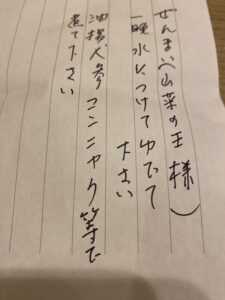 ぜんまい(山菜の王様)
一晩水につけてゆでて
下さい
油揚人参コンニャク等で
煮て下さい